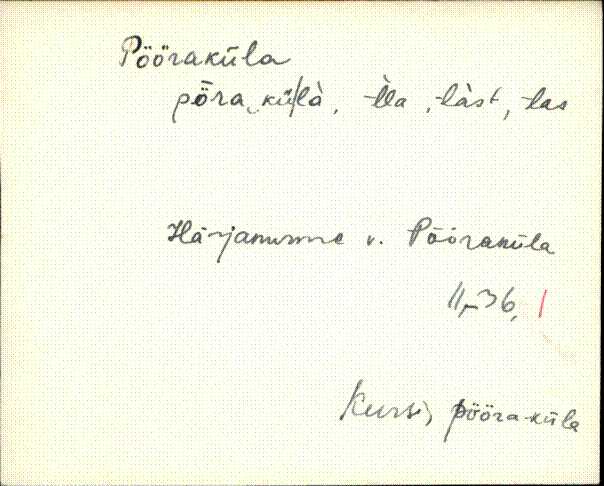 Pööraküla
pȫra küla, -lla, -làst, -las
Härjanurme v. Pööraküla
II, 36, 1
Kursi, pööra-küla